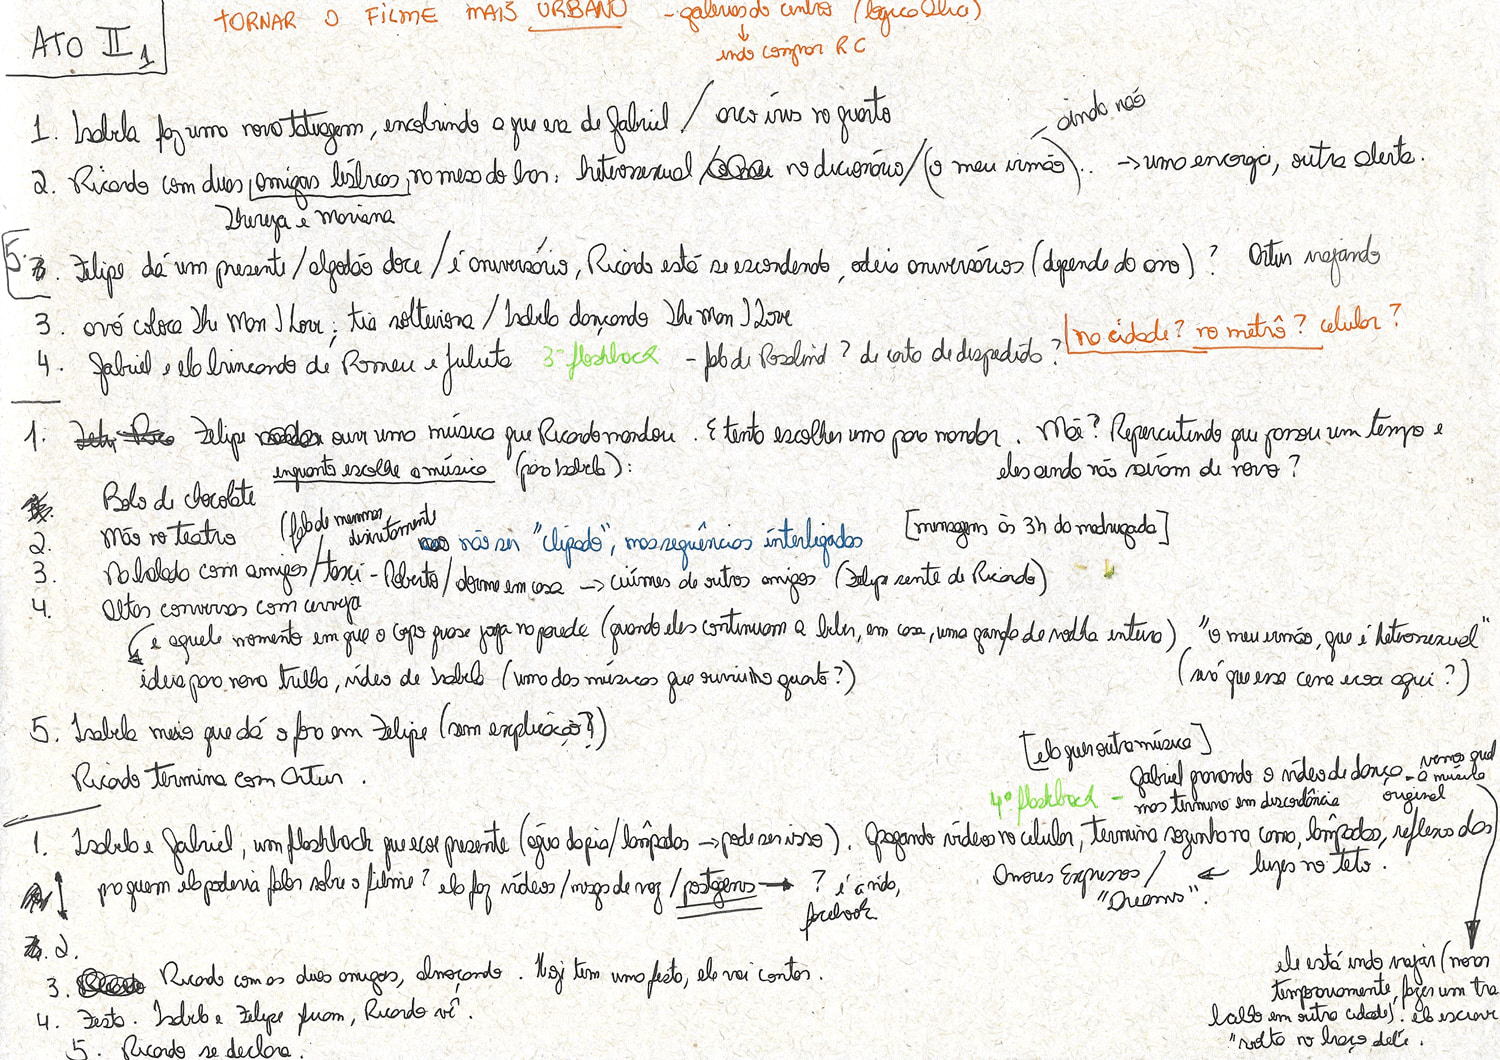 TORNAR O FILME MAIS URBANO - galerias do centro (lógico Olha)
↓
indo comprar RC
ATO II 1
1. Isabela faz uma nova tatuagem, encobrindo a que era de Gabriel / arco íris no quarto
ainda não
2. Ricardo com duas amigas lésbicas, na mesa do bar: heterosexual / no dicionário / (o meu irmão)... → uma energia, outra alerta.
Thereza e Mariana
5. Felipe dá um presente / algodão doce / é aniversário, Ricardo está se escondendo, odeia aniversários (depende do ano)? Artur viajando
3. avó coloca The Man I Love; tia solteirona / Isabela dançando The Man I Love
na cidade? no metrô? celular?
4. Gabriel e ela brincando de Romeu e Julieta 3º flashback - fala de Rosalind? de carta de despedida?
1. Felipe ouve uma música que Ricardo mandou. E tenta escolher uma para mandar. Mãe? Repercutindo que passou um tempo e
enquanto escolhe a música (pra Isabela): eles ainda não saíram de novo?
Bolo de chocolate
2. Mão no teatro (fala de meninas discretamente não ser "clipado", mas sequências interligadas [mensagem às 3h da madrugada]
3. Na balada com amigos / taxi - Roberto / dorme em casa → ciúmes de outros amigos (Felipe sente de Ricardo)
4. Altas conversas com cerveja
e aquele momento em que o copo quase joga na parede (quando eles continuam a beber, em casa, uma garrafa de vodka inteira) "o meu irmão, que é heterosexual"
ideia para nova trilha, vídeo de Isabela (uma das músicas que ouviu no quarto?) (será que essa cena ecoa aqui?)
5. Isabela meio que dá o fora em Felipe (sem explicação?)
Ricardo termina com Artur.
[ela quer outra música]
4º flashback - Gabriel gravando o vídeo de dança - vemos qual a música original
mas termina em discordância
1. Isabela e Gabriel, um flashback que ecoa presente (água da pia / lâmpadas → pode ser isso). Apagando vídeos no celular, termina sozinha na cama, lâmpadas, reflexo das
luzes no teto.
pra quem ela poderia falar sobre o filme? ela faz vídeos / msgs de voz / postagens → ? é ávida, facebook
Amores Expressos / "Dreams". ←
2.
3. Ricardo com as duas amigas, almoçando. Hoj tem uma festa, ele vai contar.
4. Festa. Isabela e Felipe ficam, Ricardo vê.
5. Ricardo se declara.
ele está indo viajar (morar
temporariamente, fazer um tra
balho em outra cidade). ela escreve
"volta no braço dele.